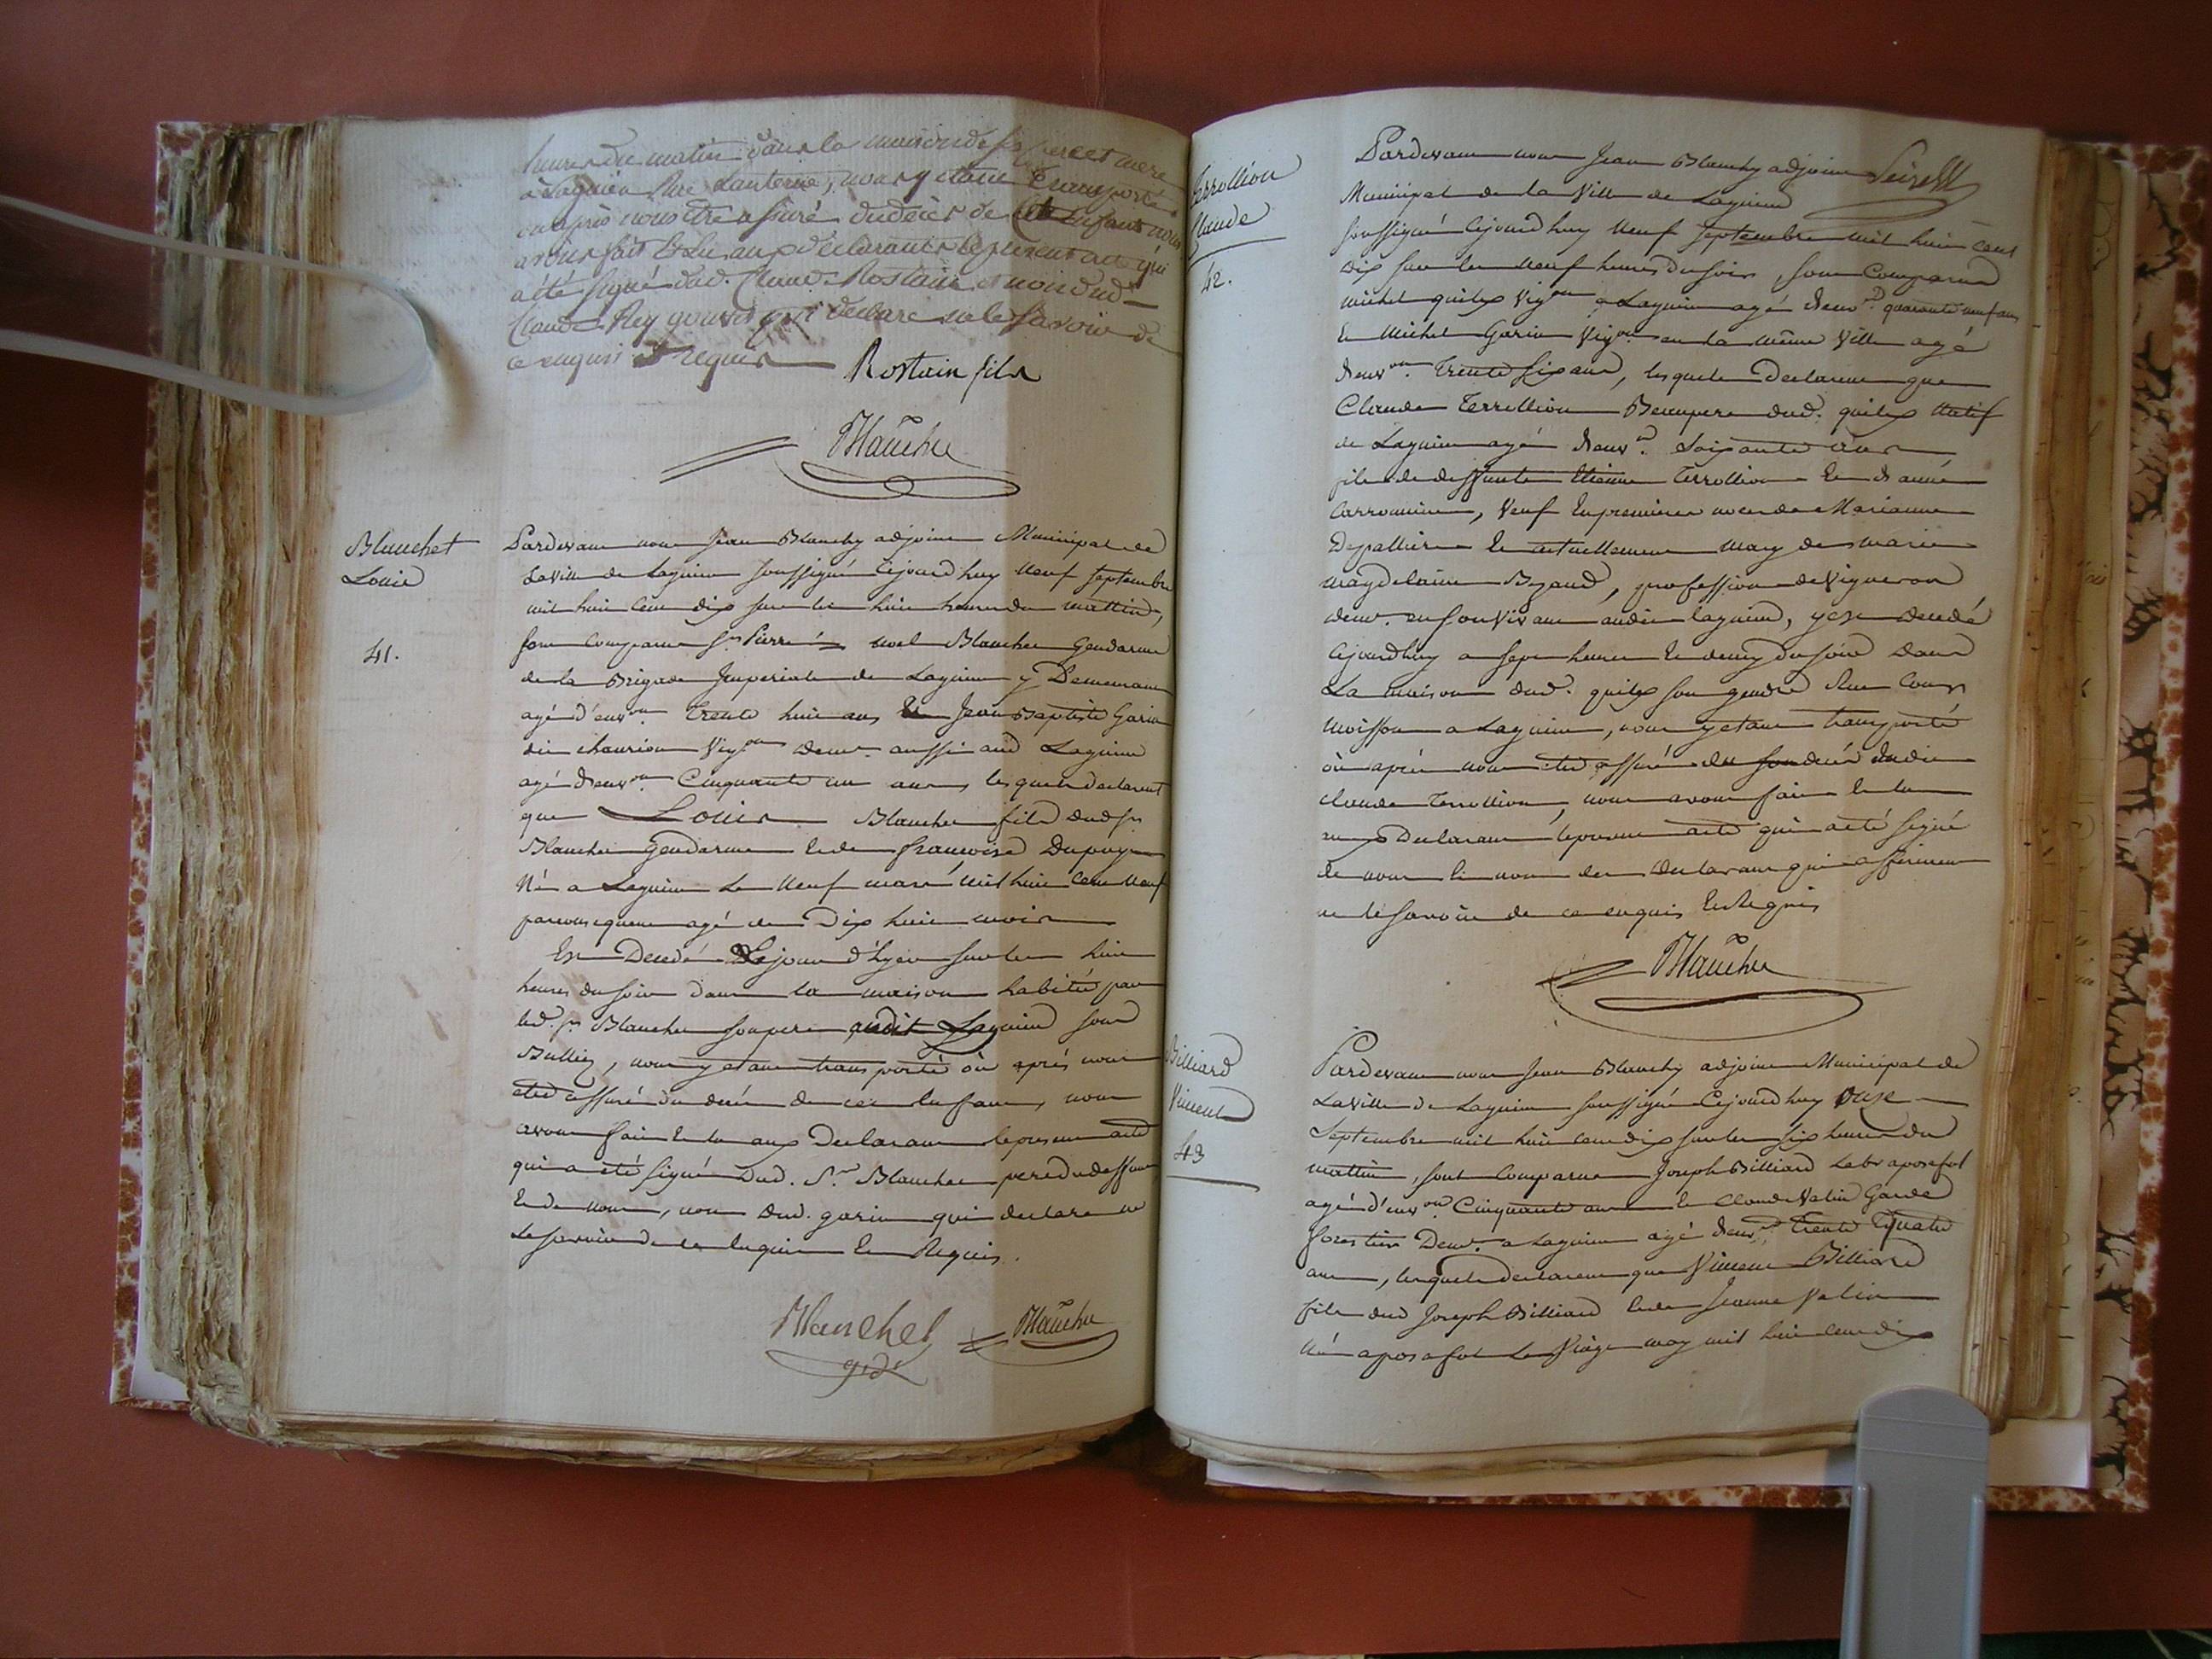 heures du matin dans la maison de ses pere et mere
à Lagnieu Rue Lanterne, nous y etant transporté
ou après nous être assuré du décès de cet Enfant nous
avons fait et Lu aux déclarants le present acte qui
a été signé dud. Claude Rostain et non dud.
Claude Rey qui declare ne le savoir de
ce enquis et requis Rostain fils
Blanchy
Blanchet
Louis
41.
Pardevant nous Jean Blanchy adjoint Municipal de
La Ville de Lagnieu soussigné Cejourd'huy Neuf Septembre
mil huit Cent dix sur les huit heures du mattin,
sont Comparus Sr. Pierre Noel Blanchet Gendarme
de la Brigade Imperiale de Lagnieu y Demeurant
agé d'envon. trente huit ans Et Jean Baptiste Garin
dit Vigon demt. aussi aud Lagnieu
agé d'envon. Cinquante un ans, lesquels declarent
que Louis Blanchet fils dud Sr.
Blanchet Gendarme Et de françoise Dupuy
Né a Lagnieu Le Neuf mars mil huit Cent Neuf
par consequent agé de Dix huit mois
Est Decedé Le jour d'hyer sur les huit
heures du soir dans la maison habitée par
led. Sr. Blanchet son pere audit Lagnieu sous
nous y etant transporté où après nous
etre assuré du decés de cet Enfant, nous
avons fait Et lu aux Declarans le present acte
qui a été signé Dud. Sr. Blanchet pere du deffunt
Et de nous, non Dud. garin qui declare ne
Le savoir de ce Enquis Et Requis.
Blanchet
gdr
Blanchy
Terrollion
Claude
42.
Pardevant nous Jean Blanchy adjoint
Municipal de la Ville de Lagnieu
soussigné Cejourd'huy Neuf Septembre mil huit Cent
dix sur les Neuf heures du soir, sont Comparus
Michel quilex Vigon a Lagnieu agé d'envn. quarante neuf ans
Et Michel Garin Vigon. en la même Ville agé
d'envon. trente six ans, lesquels Declarent que
Claude Terrollion Beaupere dud. quilex Natif
de Lagnieu agé d'envn. Soixante ans
fils de deffunts Etienne Terrollion Et d'anne
Carronnier, Veuf En premieres noces de Marianne
Depallière Et actuellement Mary de Marie
Magdelaine Bezand, profession de Vigneron
demt. en son Vivant audit lagnieu, y est decedé
Cejourd'huy a sept heures Et demy du soir dans
La maison dud. quilex son gendre Rue Cour
moisson a Lagnieu, nous y etant transporté
où après nous etre assuré du son decés dudit
claude Terrollion, nous avons fait Et lu
aux Declarans le present acte qui a été signé
de nous Et non des declarans qui affirment
ne le savoir de ce enquis Et Requis
Blanchy
Billiard
Vincent
43
Pardevant nous Jean Blanchy adjoint Municipal de
La Ville de Lagnieu soussigné Cejourd'huy onze
Septembre mil huit cent dix sur les six heures du
mattin, sont Comparus Joseph Billiard Labr a posafol
agé d'envon Cinquante ans Et Claude Valin Garde
forestier Demt. a Lagnieu agé d'envn. trente quatre
ans, lesquels declarent que Vincent Billiard
fils dud Joseph Billiard Et de Jeanne Valin
Né a posafol Le Vingt may mil huit cent dix